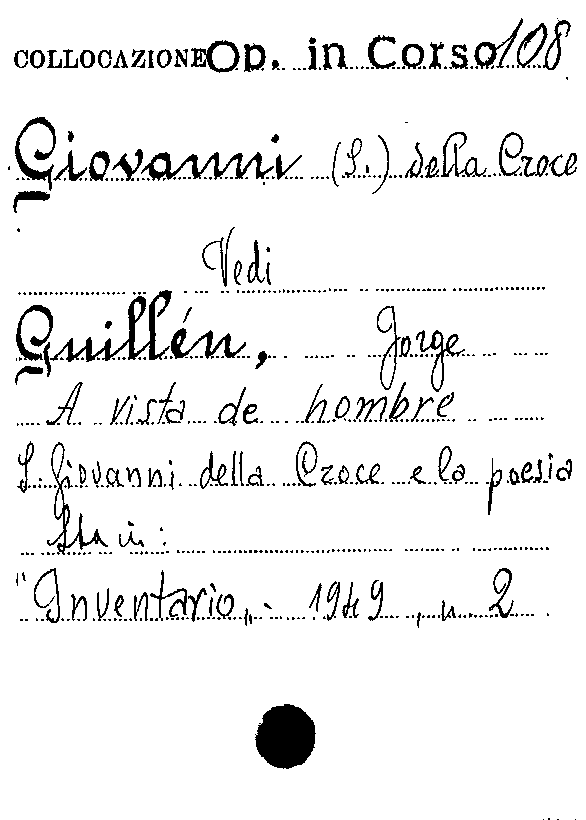 COLLOCAZIONE Op. in Corso 108
Giovanni (S.) della Croce
Vedi
Guillén, Jorge
A vista de hombre
S. Giovanni della Croce e la poesia
Sta in:
"Inventario„ - 1949, n. 2